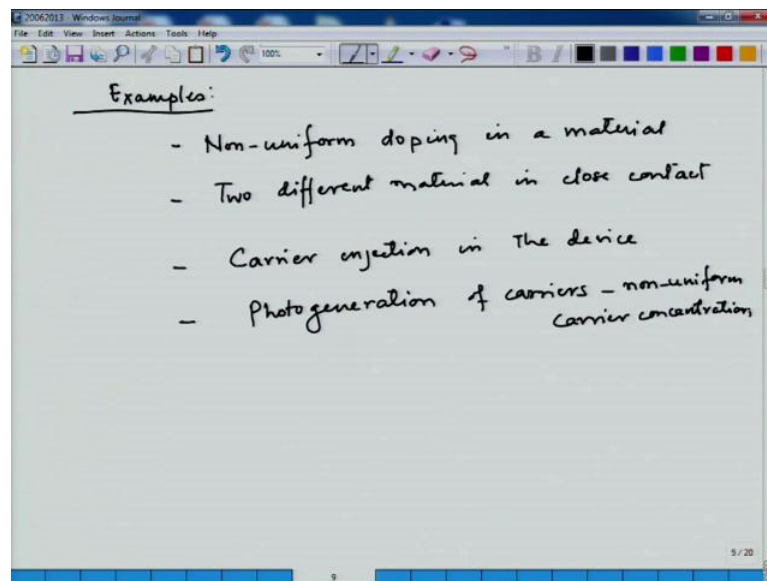 20062013 - Windows Journal
File Edit View Insert Actions Tools Help
100% B I
Examples:
- Non-uniform doping in a material
- Two different material in close contact
- Carrier injection in the device
- Photogeneration of carriers - non-uniform
carrier concentration
9/20
9